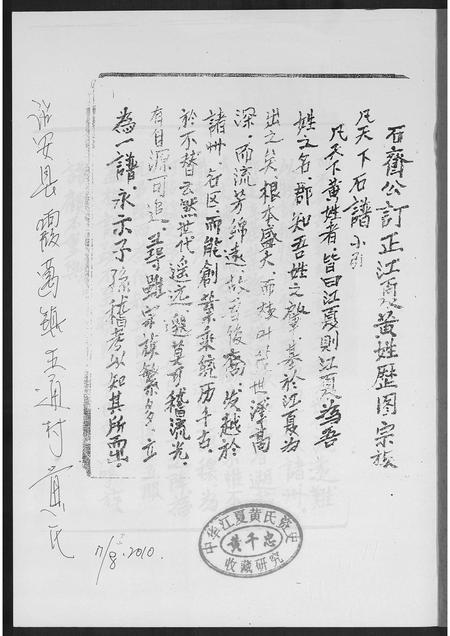 石齋公訂正江夏黃姓歷圖宗族
凡天下石譜小引
凡天下黃姓者,皆曰江夏,則江夏為吾
姓之名郡,知吾姓之啟,基於江夏為
出之矣.根本盛大,而枝叶茂世,澤高
深,而流芳綿遠,故吾後裔,发越於
諸州.各区.而能創業乘統历千古,
於不替云.然世代遥远,邈莫可稽流光,
有自源可追,尋雖宗族繁多,立
為一譜,永示子孫稽考以知其所由,
詔安县霞葛鎮五通村黃氏
17/8.2010.
中华江夏黄氏资史
黄千忠
收藏研究